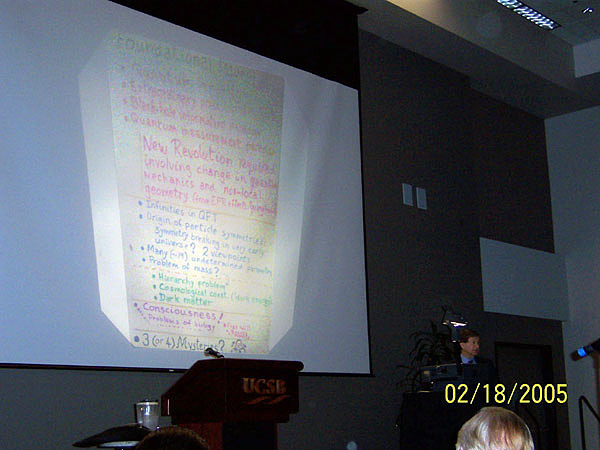 Foundational Issues
• Blackhole information paradox
• Quantum measurement paradox
New Revolution Required
involving change in quantum
mechanics and non-local
geometry (from EPR effects
• Infinities in QFT
• Origin of particle symmetries:
symmetry breaking in very early
universe? 2 viewpoints
• Many (~19) undetermined parameters
• Problem of mass?
• Hierarchy problem
• Cosmological const. (dark energy)
• Dark matter
• Consciousness!
Problems of biology
• 3 (or 4) Mysteries?
UCSB
02/18/2005